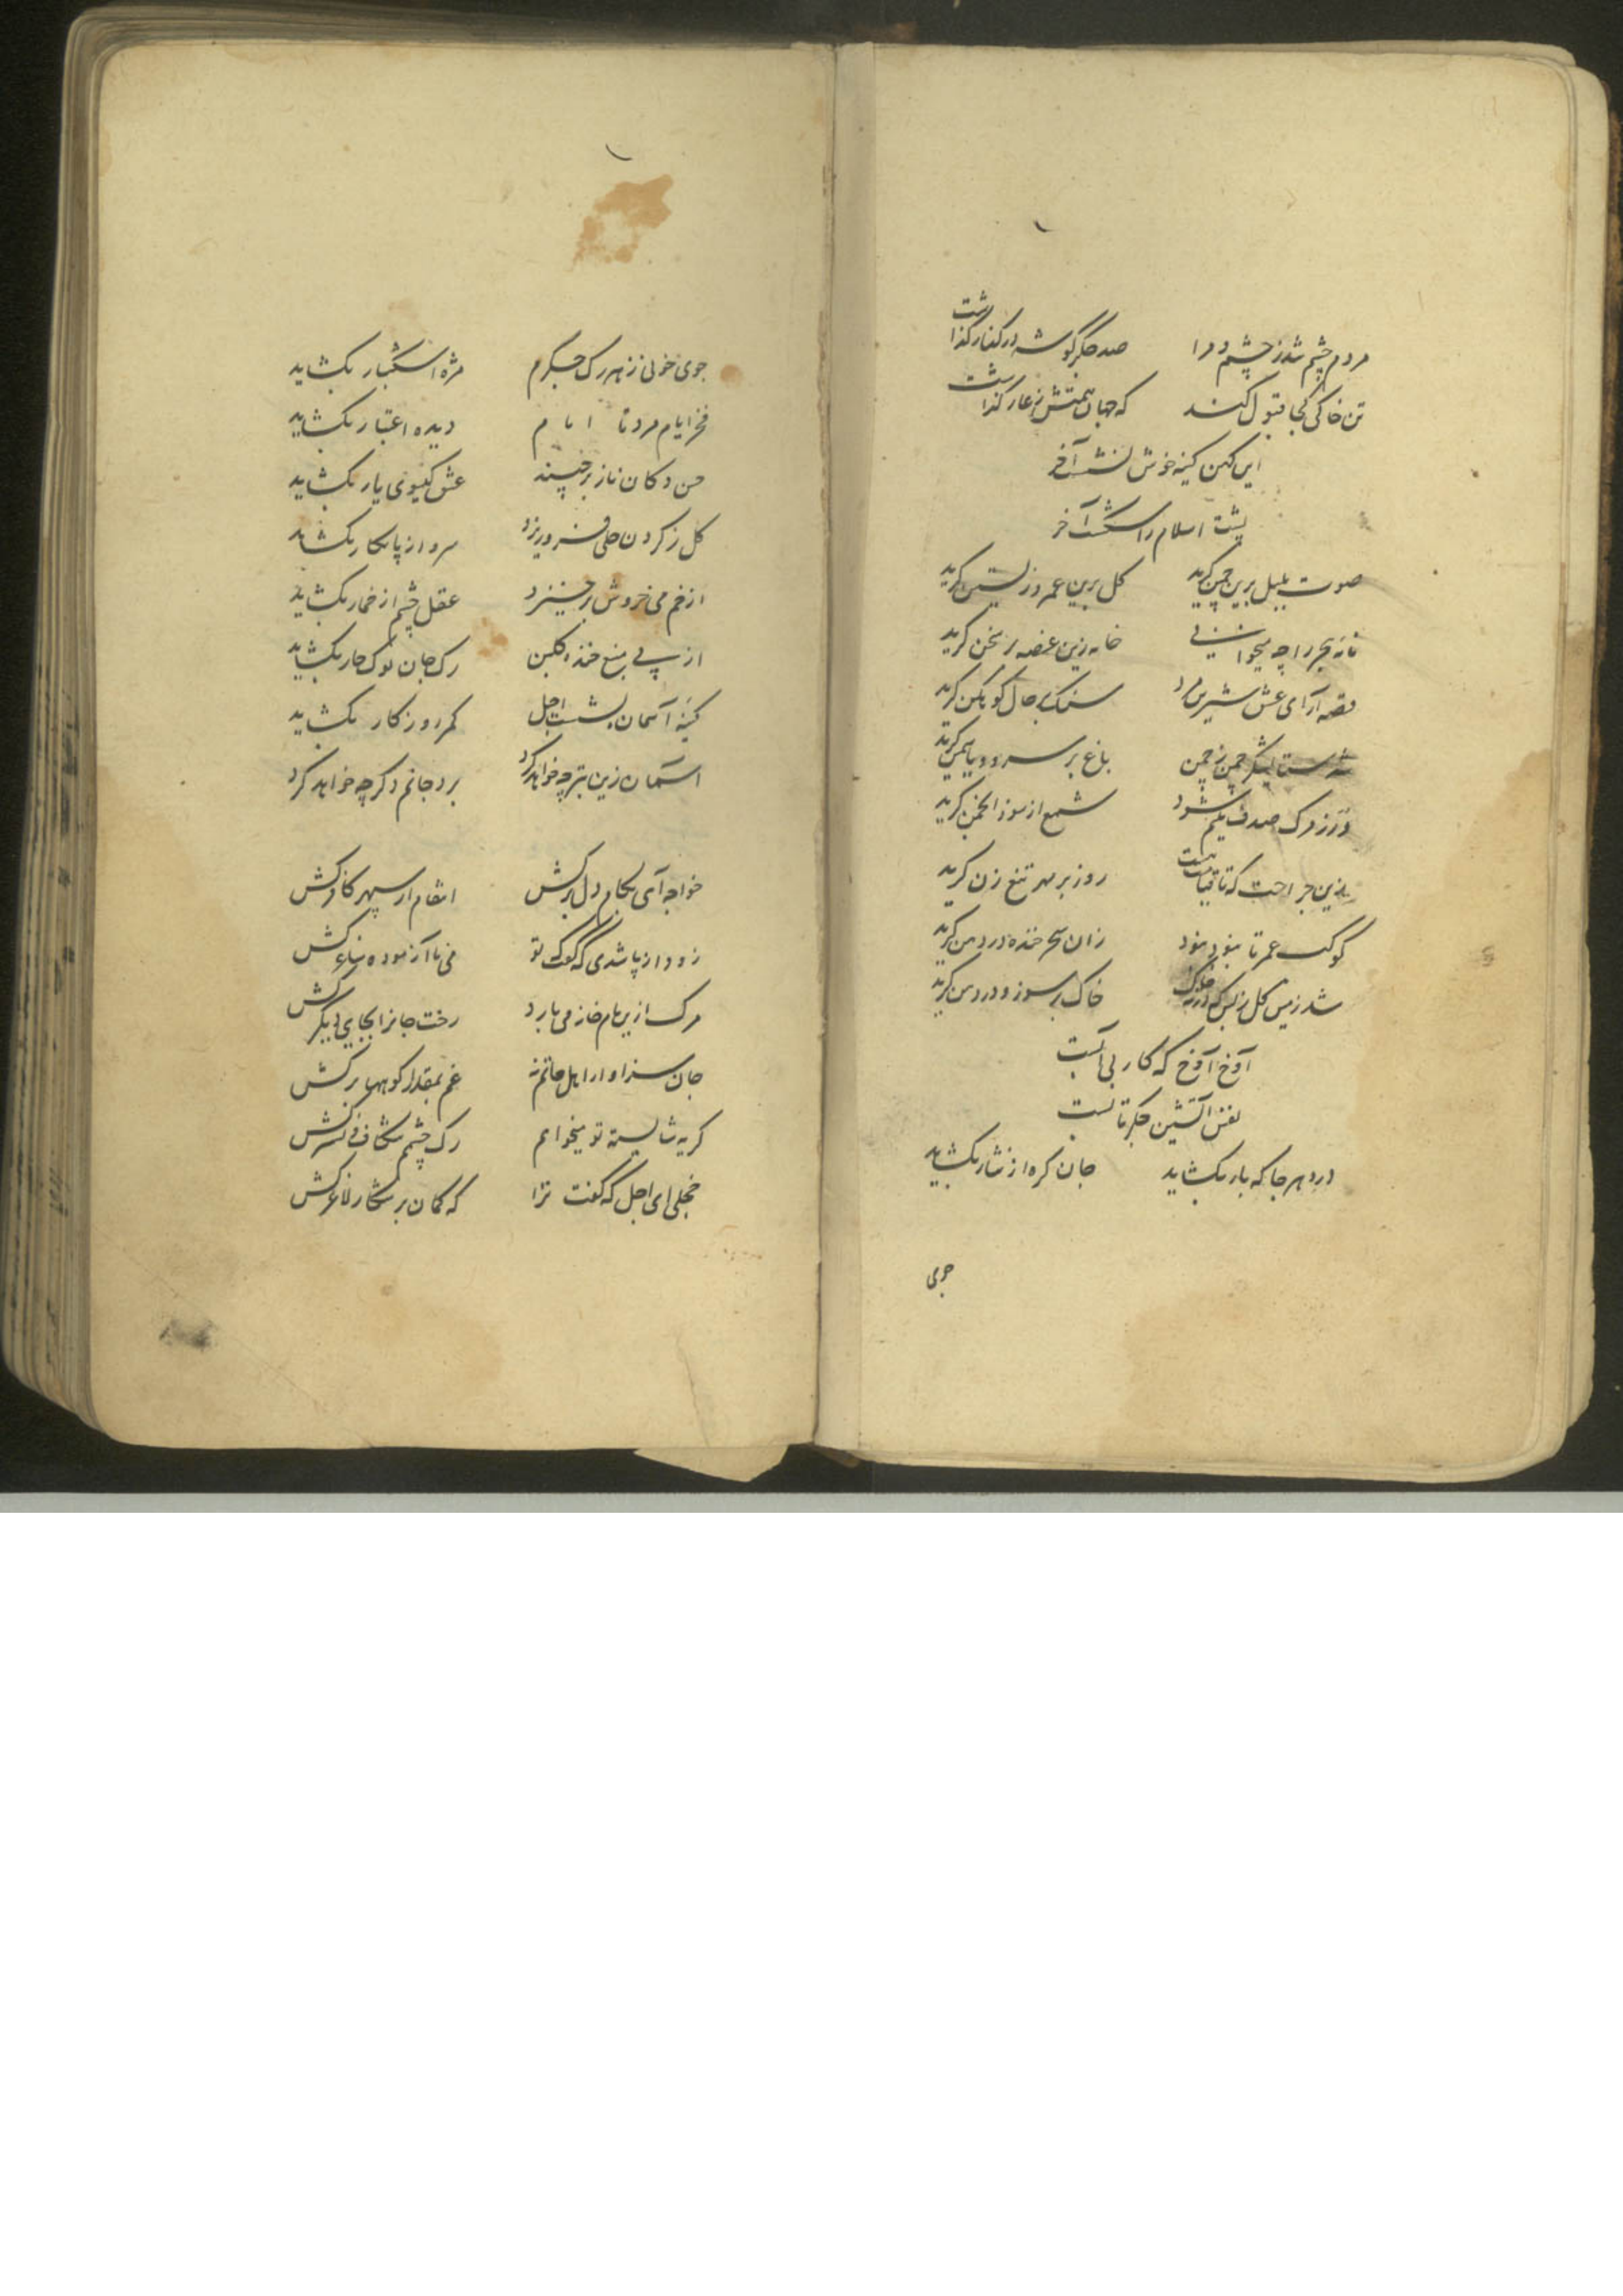 مردم چشم شد ز چشم و مرا صد جگرگوشه در کنار گذاشت
تن خاکی کجا قبول کند که جهان همتش ز عار گذاشت
این کهن کینه خوش آخر
پشت اسلام را شکست آخر
صوت بلبل برین چمن گرید گل برین عمر زیستن گرید
نامه را چه میخوانی خامه زین غصه بر سخن گرید
قصه آرای عشق شیرین مرد سنگ بر حال کوهکن گرید
چمن ز چمن باغ بر سرو و یاسمن گرید
صدف یتیم شود شمع از سوز انجمن گرید
زین جراحت که تا قیامت هست روز بر مهر تیغ زن گرید
کوکب عمر تا بنود بنود زان سحر خنده در دهن گرید
شد زمین گل ز بس که در ته خاک خاک بر سوز و درد من گرید
آوخ آوخ که کار بی آبست
نفس آتشین جگر تابست
درد هر جا که بار بگشاید جان گره از نثار بگشاید
جوی
جوی خونی ز هر رگ جگرم مژه اشکبار بگشاید
فخر ایام مرد تا ایام دیده اعتبار بگشاید
حسن دکان ناز برچیند عشق گیسوی یار بگشاید
گل ز گردن حلی فرو ریزد سرو از پا نگار بگشاید
از خم می خروش برخیزد عقل چشم از خمار بگشاید
از پی منع خنده گلبن رگ جان نوک خار بگشاید
کینه آسمان پشت اجل کمر روزگار بگشاید
آسمان زین بتر چه خواهد کرد برد جانم دگر چه خواهد کرد
خواجه آهی بکام دل برکش انتقام از سپهر کافر کش
زود از پا شدی که گفت تو می نا آزموده ساغر کش
مرگ ازین بام خانه می بارد رخت جانرا بجای دیگر کش
جان سزاوار اهل ماتم نه غم بمقدار کوهها برکش
گریه شایسته تو میخواهم رگ چشم شکاف نشتر کش
خجلی ای اجل که گفت ترا که کمان بر شکار لاغر کش